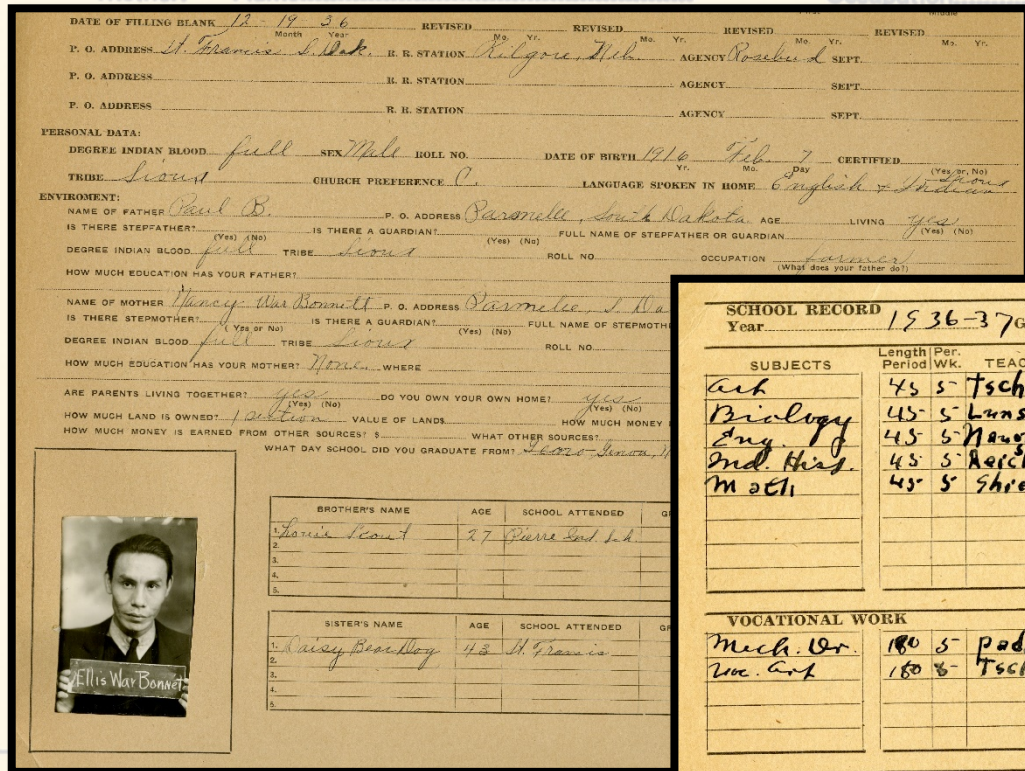 DATE OF FILLING BLANK 12 - 19 36 REVISED REVISED REVISED REVISED
Month Year Mo. Yr. Mo. Yr. Mo. Yr. Mo. Yr.
P. O. ADDRESS St. Francis S. Dak. R. R. STATION Kilgore, Neb. AGENCY Rosebud SEPT.
P. O. ADDRESS R. R. STATION AGENCY SEPT.
P. O. ADDRESS R. R. STATION AGENCY SEPT.
PERSONAL DATA:
DEGREE INDIAN BLOOD full SEX Male ROLL NO. DATE OF BIRTH 1916 Feb. 7 CERTIFIED
Yr. Mo. Day (Yes or, No)
TRIBE Sioux CHURCH PREFERENCE C. LANGUAGE SPOKEN IN HOME English & Sioux Indian
ENVIROMENT:
NAME OF FATHER Paul B. P. O. ADDRESS Parmelle, South Dakota AGE LIVING yes
IS THERE STEPFATHER? (Yes) (No) IS THERE A GUARDIAN? (Yes) (No) FULL NAME OF STEPFATHER OR GUARDIAN (Yes) (No)
DEGREE INDIAN BLOOD full TRIBE Sioux ROLL NO. OCCUPATION farmer
(What does your father do?)
HOW MUCH EDUCATION HAS YOUR FATHER?
NAME OF MOTHER Nancy War Bonnett P. O. ADDRESS Parmelee, S Da
IS THERE STEPMOTHER? (Yes or No) IS THERE A GUARDIAN? (Yes) (No) FULL NAME OF STEPMOTH
DEGREE INDIAN BLOOD full TRIBE Sioux ROLL NO.
HOW MUCH EDUCATION HAS YOUR MOTHER? None. WHERE
ARE PARENTS LIVING TOGETHER? yes DO YOU OWN YOUR OWN HOME? yes
(Yes) (No) (Yes) (No)
HOW MUCH LAND IS OWNED? 1 section VALUE OF LAND$ HOW MUCH MONEY
HOW MUCH MONEY IS EARNED FROM OTHER SOURCES? $ WHAT OTHER SOURCES?
WHAT DAY SCHOOL DID YOU GRADUATE FROM? Genoa,
BROTHER'S NAME AGE SCHOOL ATTENDED
1. Louie Scout 27 Pierre Ind. Sch.
2.
3.
4.
5.
SISTER'S NAME AGE SCHOOL ATTENDED
1. Daisy Bear Dog 43 St. Francis
2.
3.
4.
5.
Ellis War Bonnet
SCHOOL RECORD
Year 1936-37 G
SUBJECTS Length Period Per. Wk. TEAC
Art 45 5 Tsch
Biology 45 5 Luns
Eng. 45 5
Ind. Hist. 45 5 Reich
Math 45 5 Shie
VOCATIONAL WORK
Mech. Dr. 180 5 Pad
Voc. Art 180 5 Tsch